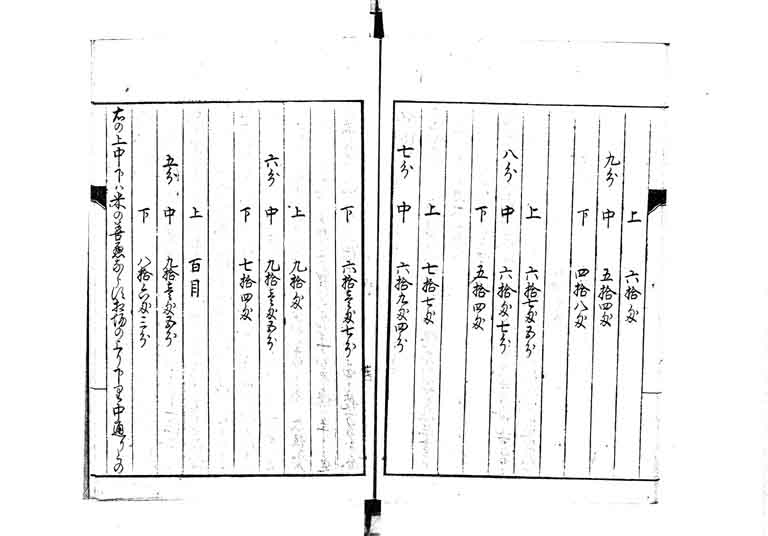 上 六拾匁
九分 中 五拾四匁
下 四拾八匁
上 六拾七匁五分
八分 中 六拾匁七分
下 五拾四匁
上 七拾七匁
七分 中 六拾九匁四分
下 六拾壱匁七分
上 九拾匁
六分 中 九拾壱匁五分
下 七拾四匁
上 百目
五分 中 九拾壱匁五分
下 八拾六匁三分
右の上中下ハ米の善悪
の上り下り
中通りの